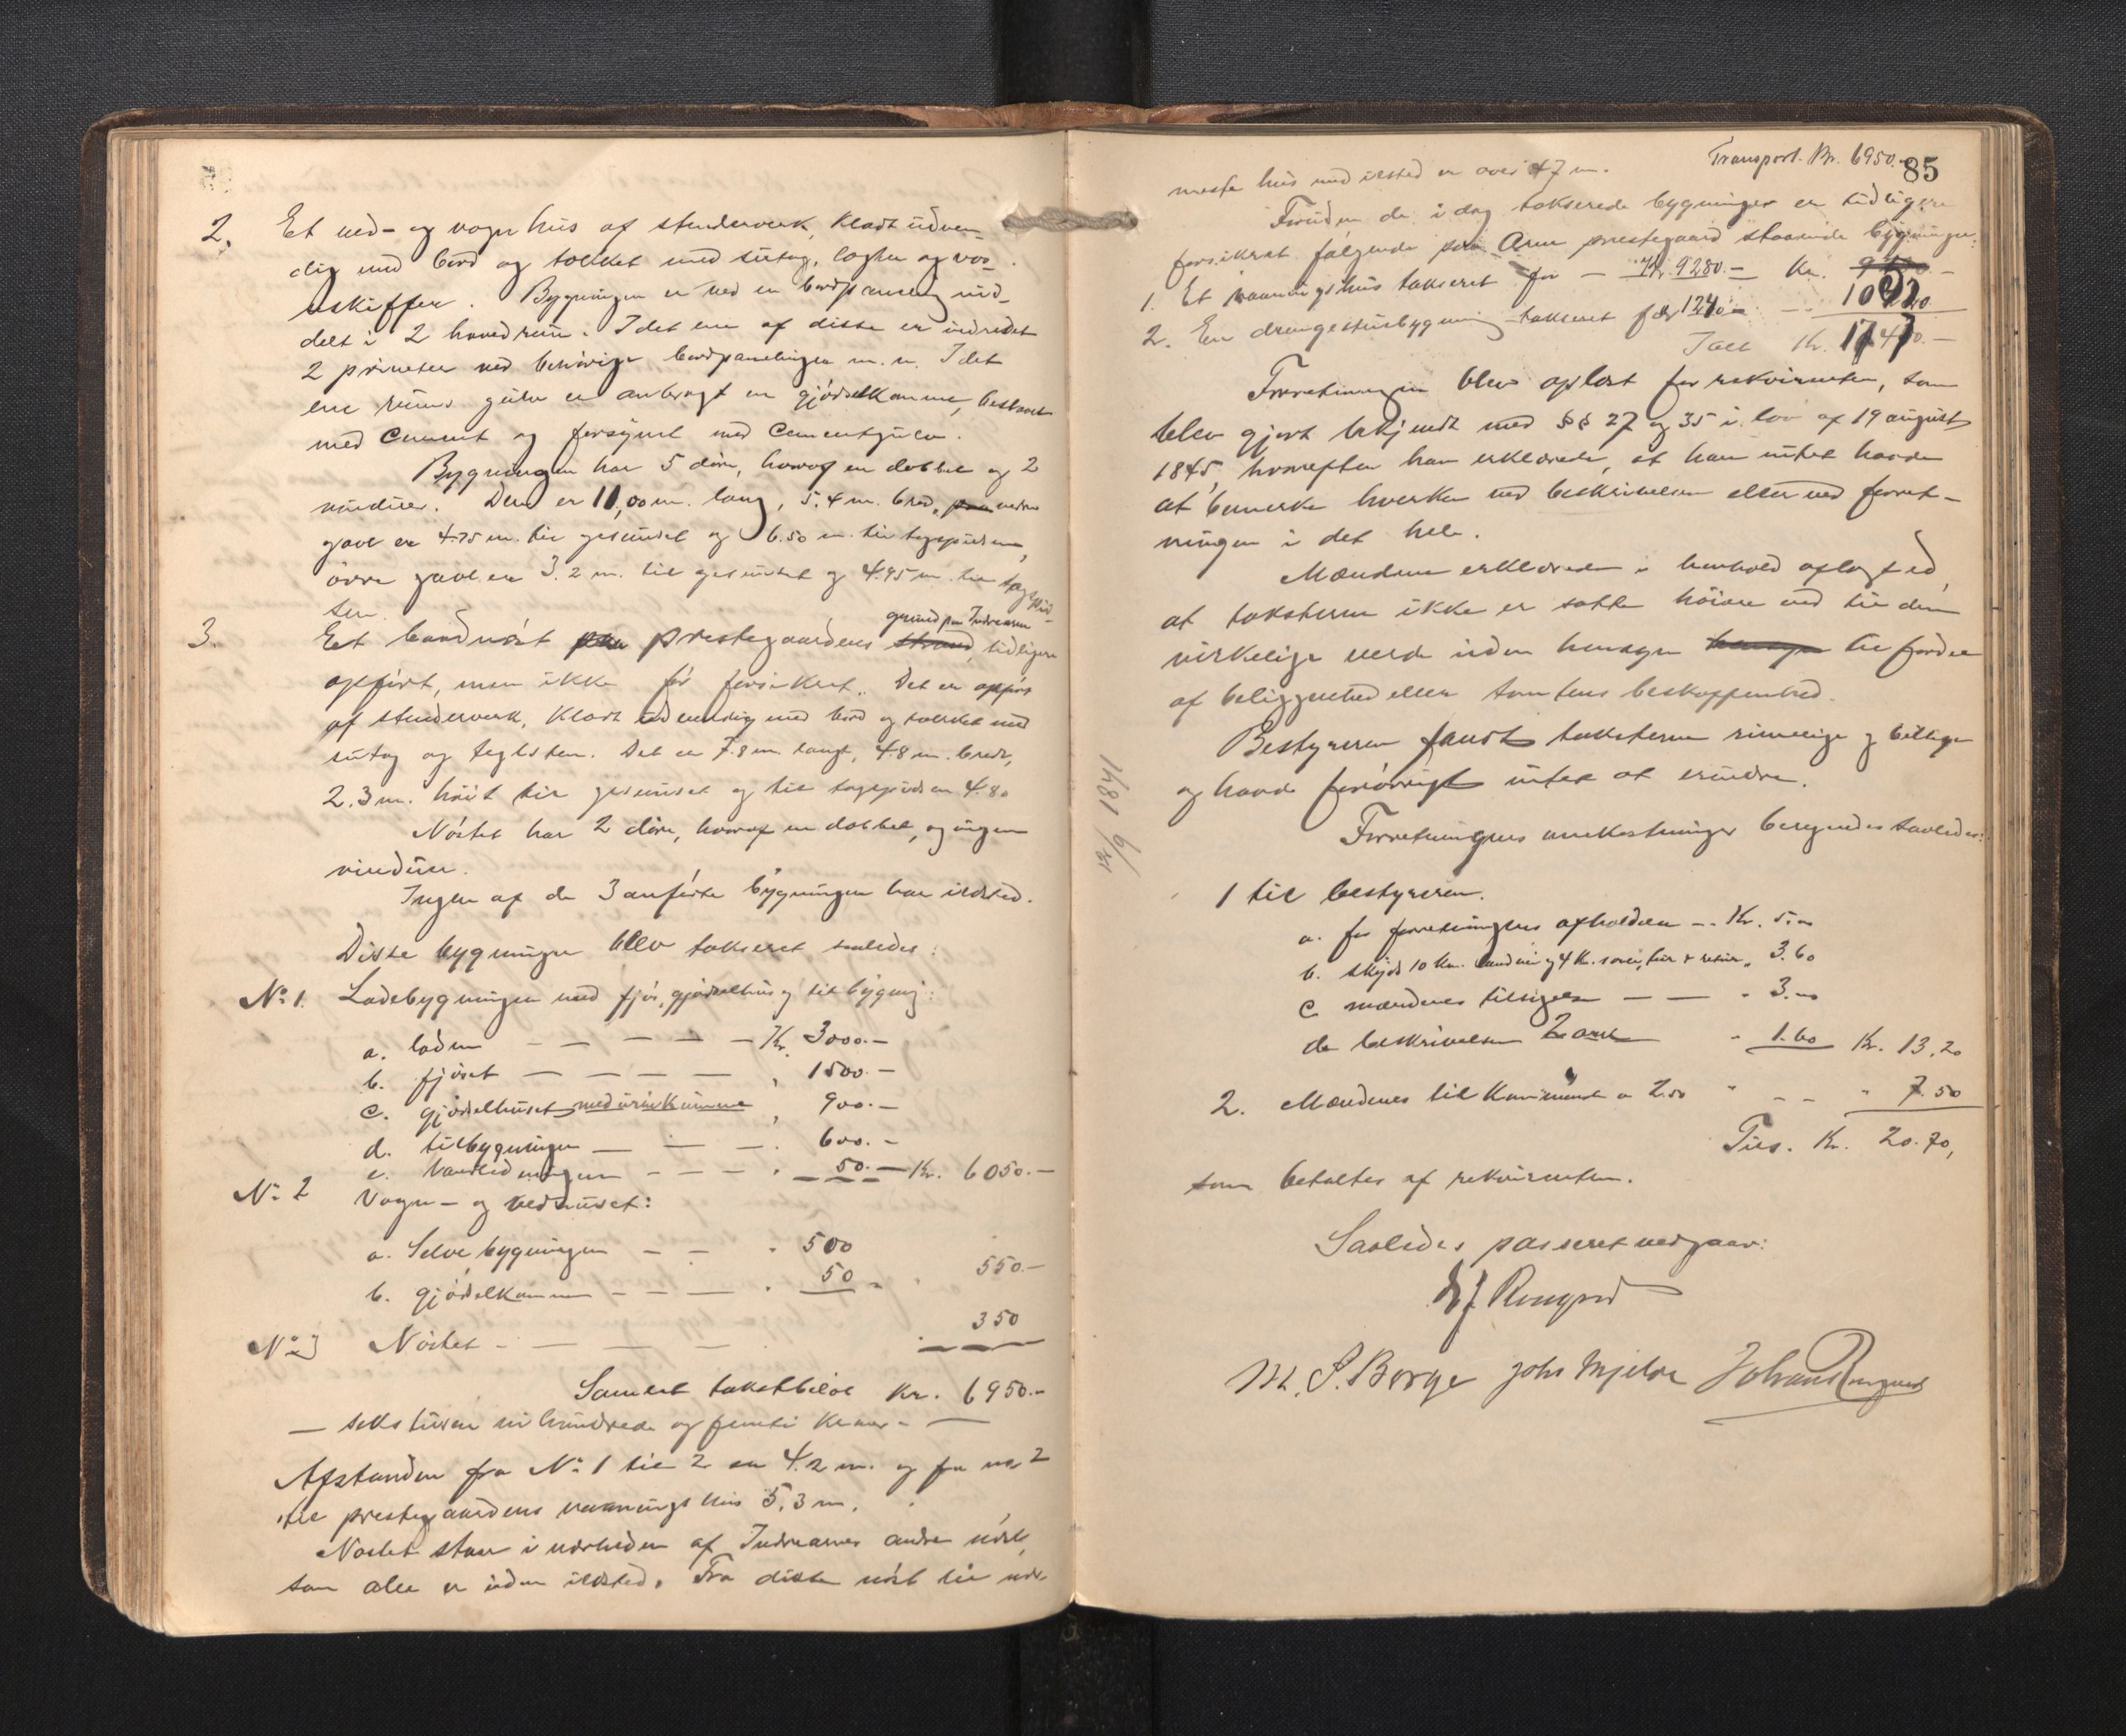 2. Et ved- og vognhus af stenderverk, klædt udven-
dig med bord og tækket med sutag, lægter og vos-
seskiffer. Bygningen er ved en bordpaneling ind-
delt i 2 hovedrum. I det ene af disse er indredet
2 priveter med behørige bordpanelinger m. m. I det
ene rums gulv er anbragt en gjødselkumme, beslaaet
med Cement og forsynet med Cementgulv.
Bygningen har 5 døre, hvoraf en dobbel og 2
vinduer. Den er 11,00 m. lang, 5.4 m. bred, nedre
gavl er 4.75 m. til gesimset og 6.50 m. til tagspidsen,
øvre gavl er 3.2 m. til gesimset og 4.95 m. til tagspid-
sen.
3. Et baadnøst paa prestegaardens strand grund paa Indrearne, tidligere
opført, men ikke før forsikret. Det er opført
af stenderverk, klædt udvendig med bord og tækket med
sutag og teglsten. Det er 7.8 m. langt, 4.8 m. bredt,
2.3 m. høit til gesimset og til tagspidsen 4.80
Nøstet har 2 døre, hvoraf en dobbel, og ingen
vinduer.
Ingen af de 3 anførte bygninger har ildsted.
Disse bygninger blev takseret saaledes:
No 1. Ladebygningen med fjøs, gjødselhus og tilbygning:
a. laden — — — — — Kr. 3000.—
b. fjøset — — — — — " 1500.—
c. gjødselhuset med urinkumme " 900.—
d. tilbygningen — — — " 600.—
e. Vandledningen - - - - " 50.— Kr. 6050.—
No 2 Vogn- og vedhuset:
a. Selve bygningen — — " 500
b. gjødselkummen - - — " 50 - " 550.—
No 3 Nøstet - — — — " 350
Samlet takstbeløb Kr. 6950.—
— seks tusen ni hundrede og femti kroner. —
Afstanden fra No 1 til 2 er 4.2 m. og fra no 2
til prestegaardens vaaningshus 5.3 m.
Nøstet staar i nærheden af Indrearnes andre nøst,
som alle er uden ildsted. Fra disse nøst til nær-
Transport. Kr. 6950.-
85
meste hus med ildsted er over 47 m.
Foruden de i dag takserede bygninger er tidligere
forsikret følgende paa Arne prestegaard staaende bygninger:
1. Et vaaningshus takseret for — Kr. 9280.— Kr.
2. En drengestuebygning takseret for 1240.—
Ialt Kr.
Forretningen blev oplæst for rekvirenten, som
blev gjort bekjendt med §§ 27 og 35 i lov af 19 august
1845, hvorefter han erklærede, at han intet havde
at bemerke hverken ved beskrivelsen eller ved forret-
ningen i det hele.
Mændene erklærede i henhold aflagt ed,
at taksterne ikke er satte høiere end til den
virkelige verdi uden hensyn til fordel
af beliggenhed eller tomtens beskaffenhed.
Bestyreren fandt taksterne rimelige og billige
og havde forøvrigt intet at erindre.
Forretningens omkostninger beregnedes saaledes:
1 til bestyreren.
a. for forretningens afholdelse -.. Kr. 5.00
b. skyds 10 Km. landvei og 4 K. søvei, tur & retur " 3.60
c mændenes tilsigelse — — " 3.00
d. beskrivelsen 2 ark " 1.60 Kr. 13.20
2. Mændenes tilkommende a 2.50 " - - " 7.50
Tils. Kr. 20.70,
som betaltes af rekvirenten.
Saaledes passeret vedgaar:
M. S. Borge Johs Mjelde Johans